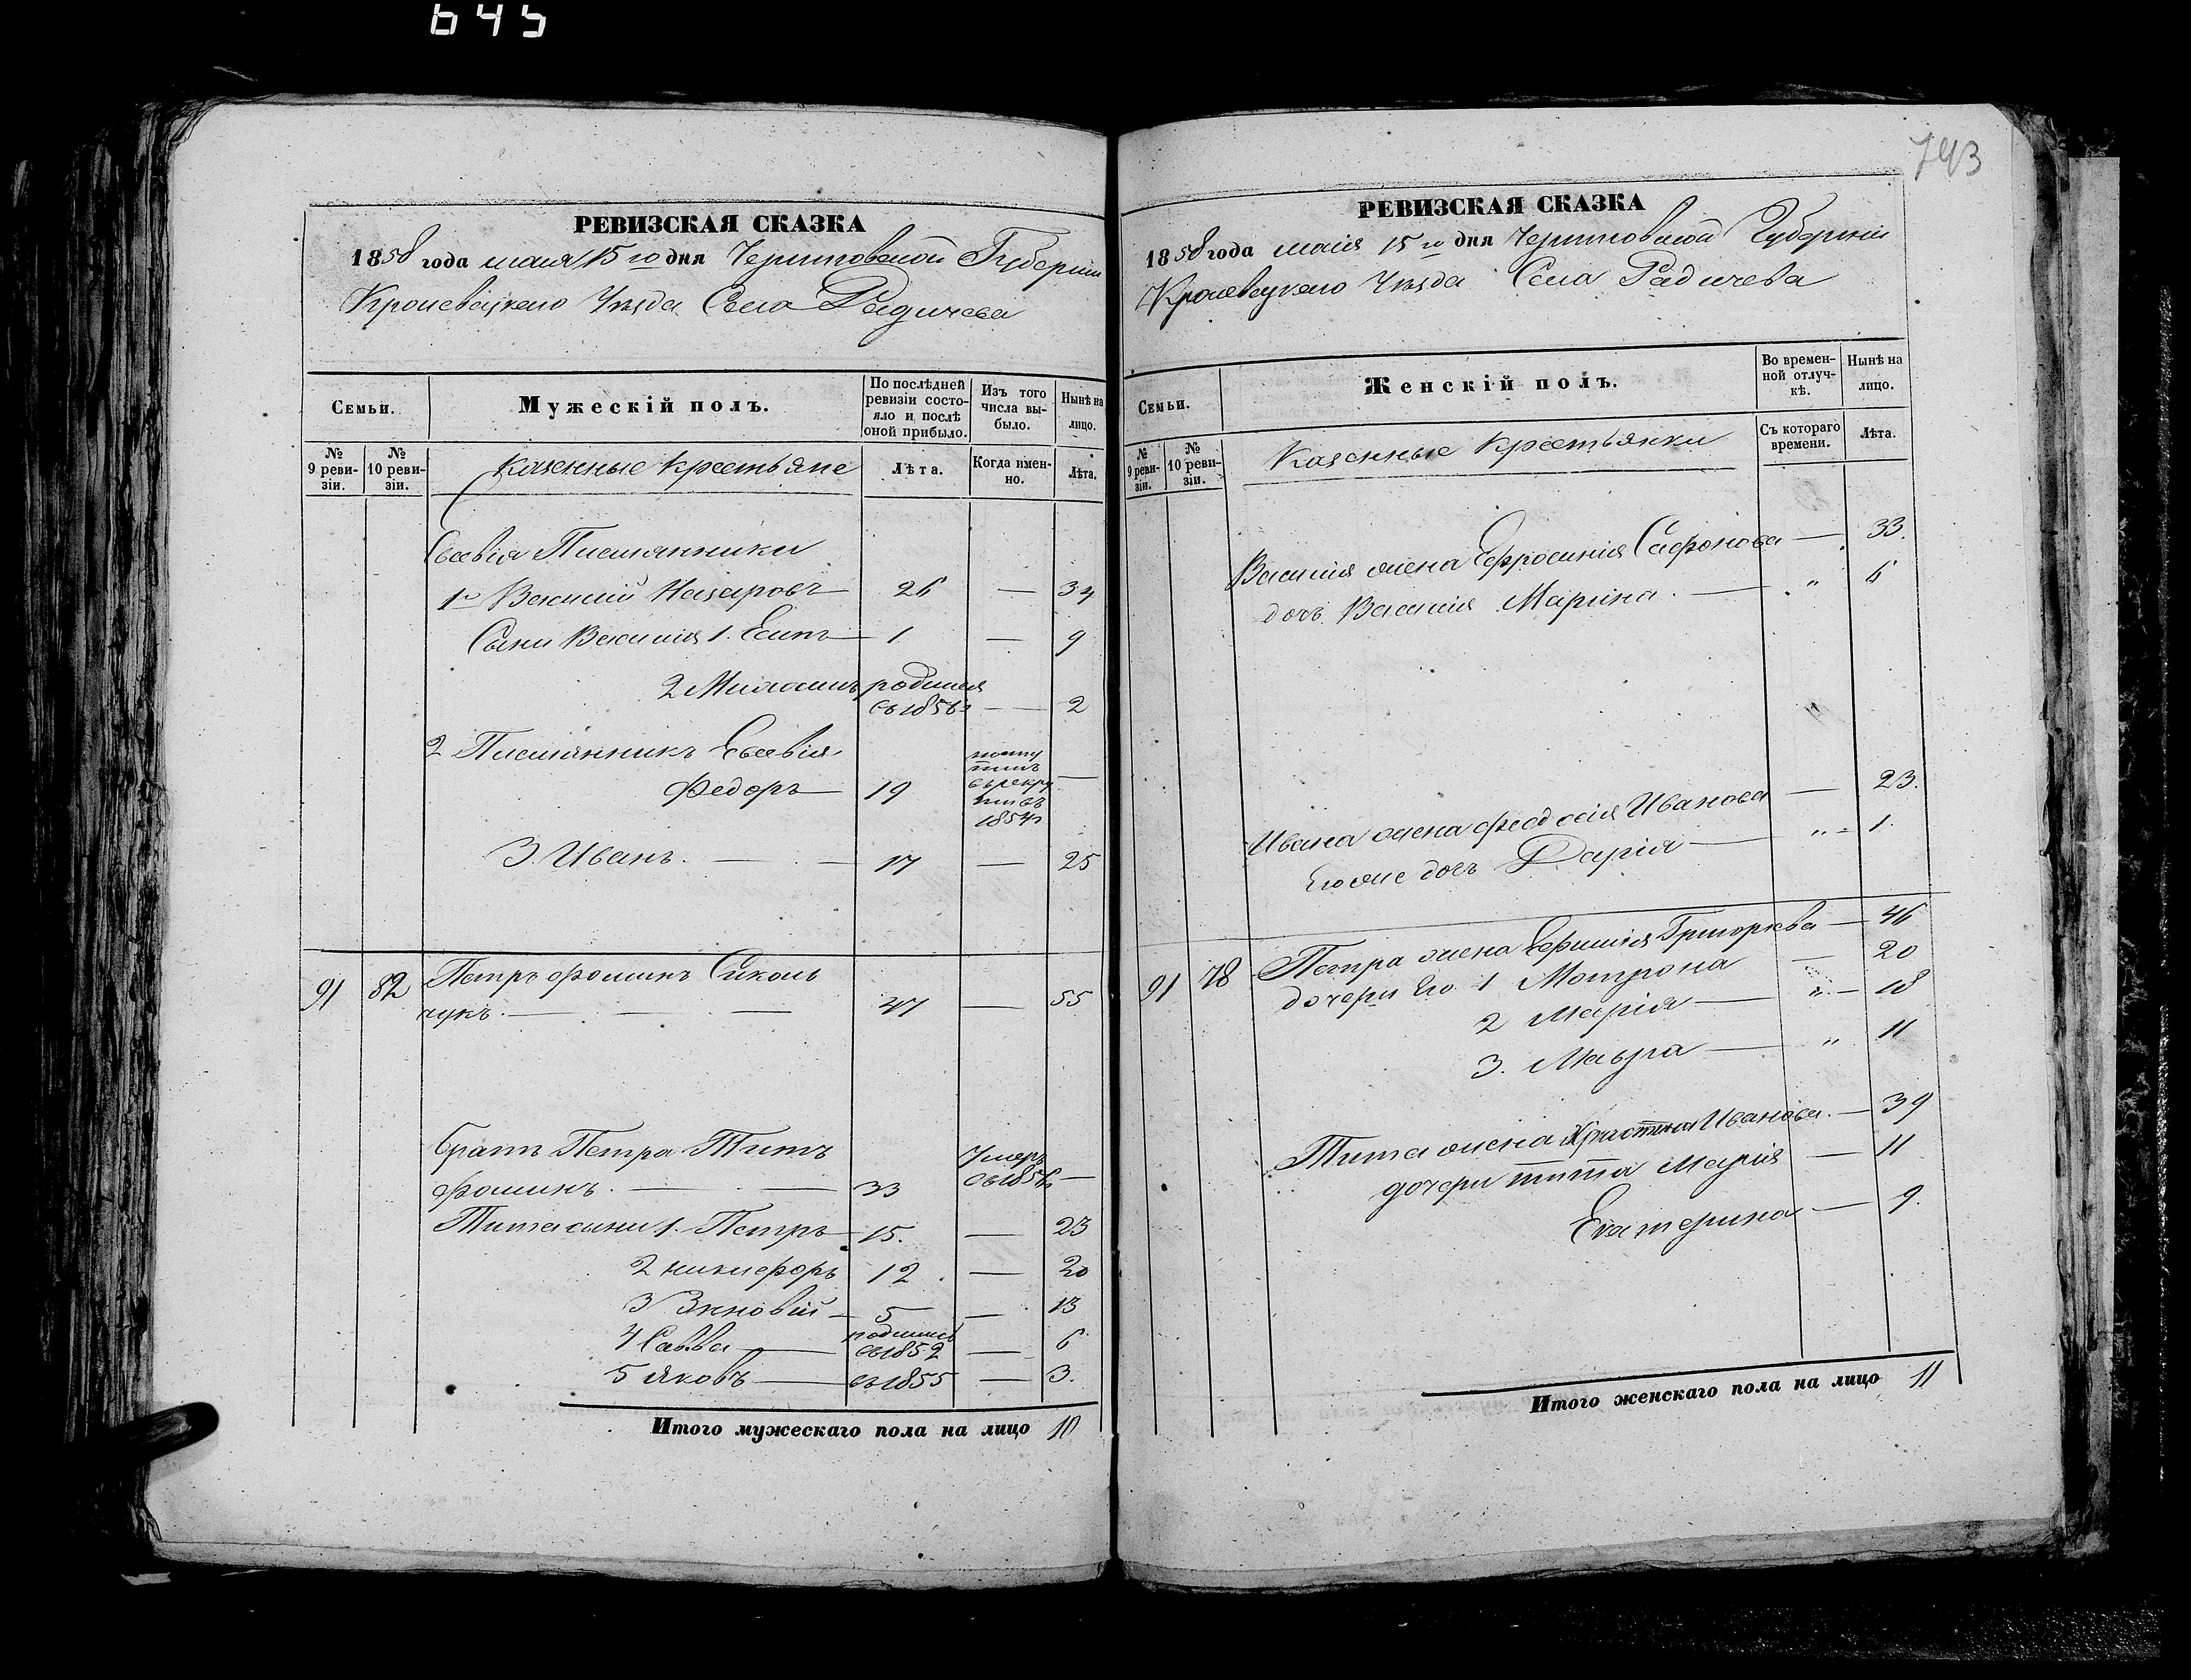 645
РЕВИЗСКАЯ СКАЗКА
1858 года мая 15го дня Черниговской Губерніи
Кролевецкаго Уѣзда Села Радичева
Семьи.
Мужескій полъ.
По послѣдней ревизіи состояло и послѣ оной прибыло.
Изъ того числа выбыло.
Нынѣ на лицо.
№ 9 ревизіи.
№ 10 ревизіи.
Казенные крестьяне
Лѣта.
Когда именно.
Лѣта.
Евсевія Племянники
1й Василий Назаровъ — 26 — 34
Сыни Василія 1. Есипъ — 1 — 9
2 родился
въ 1856г — 2
2 Племянникъ Евсевія
Федоръ — 19 посту
пилъ
въ рекру
ты въ
1854г —
3. Иванъ. — 17 — 25
91 82 Петръ Фоминъ Сиколь
чукъ. — 47 — 55
Братъ Петра Титъ
Фоминъ. — 33 Умеръ
въ 1856г —
Тита сыни 1. Петръ — 15. — 23
2 Никифоръ 12. — 20
3 Зиновій — 5 — 13
4 Савва — родился
въ 1852 — 6
5 Яковъ — въ 1855 — 3.
Итого мужескаго пола на лицо 10
743
РЕВИЗСКАЯ СКАЗКА
1858 года маія 15го дня Черниговской Губерніи
Кролевецкаго Уѣзда Села Радичева
Семьи.
Женскій полъ.
Во временной отлучкѣ.
Нынѣ на лицо.
№ 9 ревизіи.
№ 10 ревизіи.
Казенные Крестьянки
Съ котораго времени.
Лѣта.
Василія жена Ефросинія Сафонова — 33.
дочь Василія Марина. — " 6
Ивана жена Феодосія Иванова — 23.
Его же дочь Дарія — " - 1.
91 78 Петра жена Ефимія Григорьева — 46
дочери Его 1 Мотрона — 20
2 Марія — " — 18
3. Мавра — " 11
Тита жена Христина Иванова. — 39
дочери Тита Марія — 11
Екатерина — 9.
Итого женскаго пола на лицо 11